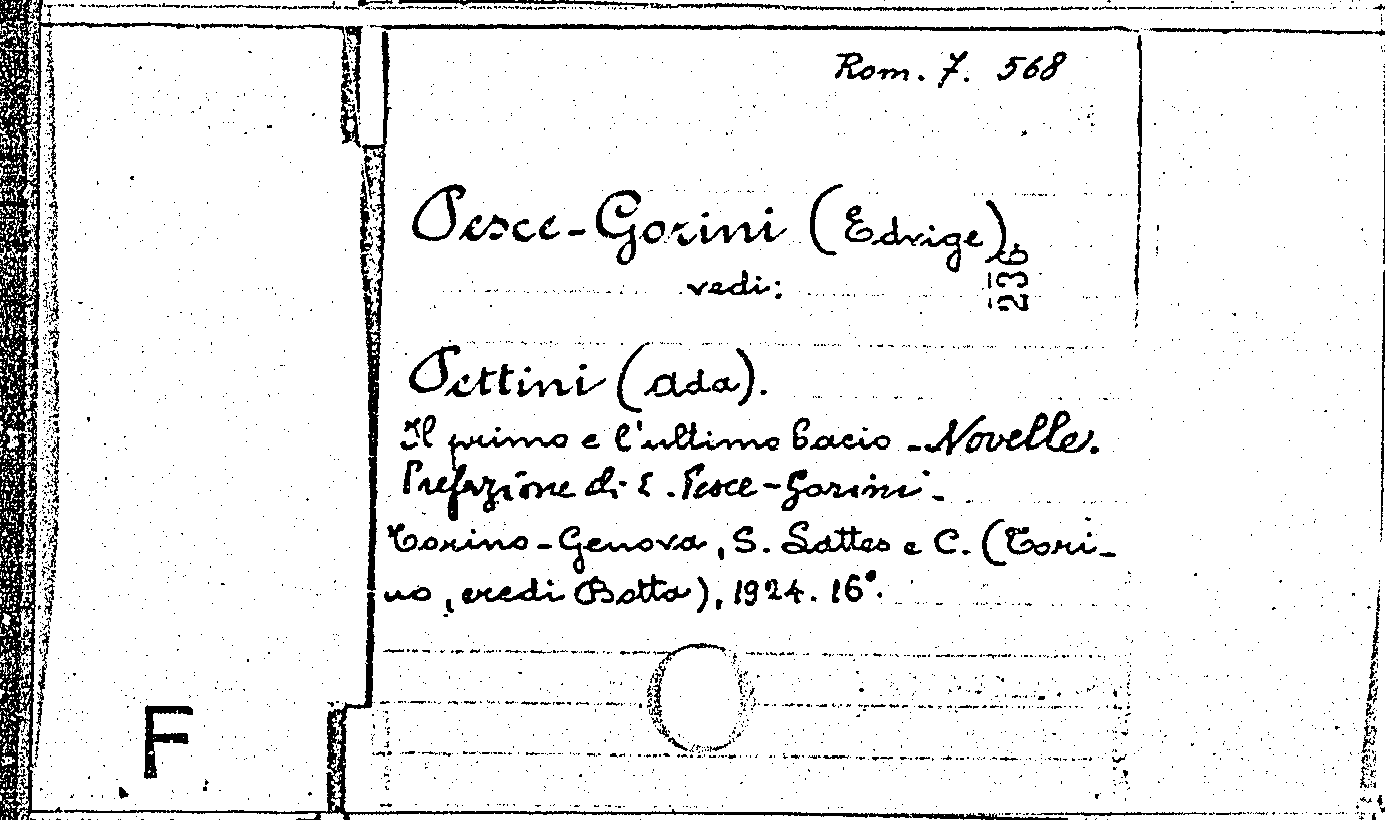 Rom. 7. 568
Pesce-Gorini (Edvige)
236
vedi:
Pettini (Ada).
Il primo e l'ultimo bacio - Novelle.
Prefazione di E. Pesce-Gorini -
Torino-Genova, S. Lattes e C. (Tori-
no, eredi Botta), 1924. 16°.
F